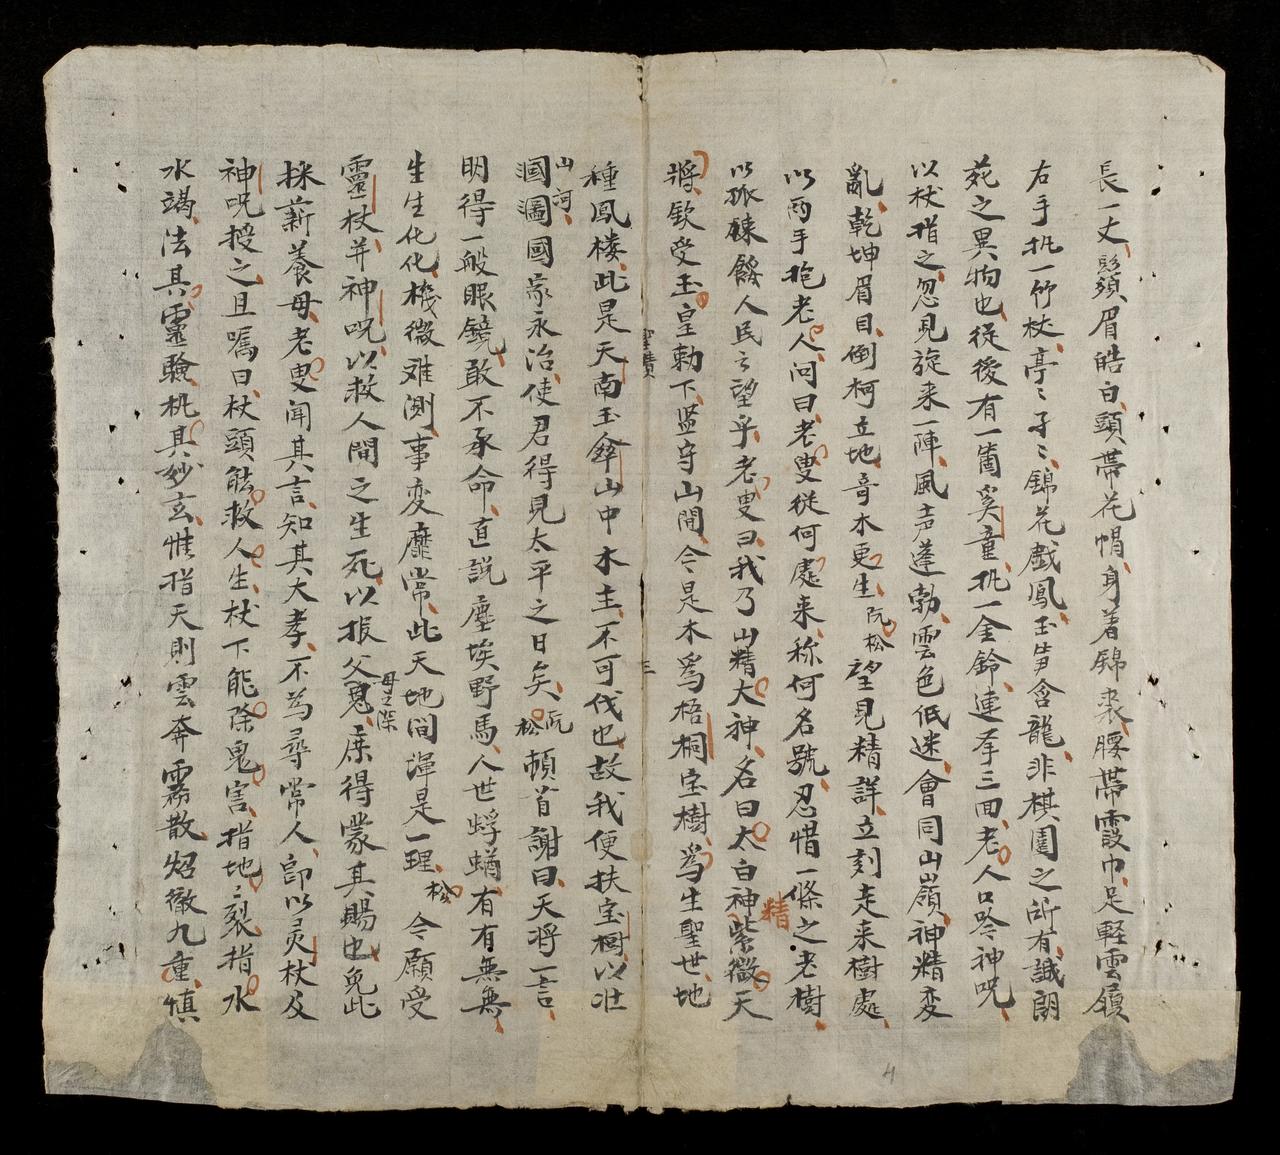 長一丈鬚眉皓白頭帶花帽身着錦裘腰帶霞巾足軽雲履
右手扎一竹杖亭〻孑〻錦花戲鳳玉笋含龍非棋園之所有誠閬
苑之異物也従後有一箇奚童扎一金鈴連拏三回老人口唫神呪
以杖指之忽見旋来一陣風声蓬勃雲色低迷會同山嶺神精変
亂乾坤眉目倒柯立地奇木更生阮松望見精詳立刻走来樹處
以两手抱老人问曰老叟従何處来称何名號忍惜一條之老樹
以孤餘人民之望乎老叟曰我乃山精大神名曰太白神精紫微天
將欽受玉皇勅下监守山間今是木爲梧桐宝樹爲生聖世地
種鳳楼此是天南玉傘山中木主不可伐也故我便扶宝樹以壮
山河國家永治使君得見太平之日矣阮松頓首謝曰天將一言
明得一般眼鏡敢不承命直説塵埃野馬人世蜉蝤有有無無
生生化化機微难測事変靡常此天地间渾是一理松今願受
靈杖并神呪以救人間之生死以报父母之深恩庶得蒙其賜也免此
採薪養母老叟闻其言知其大孝不爲尋常人即以灵杖及
神呪授之且嘱曰杖頭能救人生杖下能除鬼害指地〻裂指水
水竭法其靈驗机其妙玄惟指天則雲奔霧散炤徹九重慎